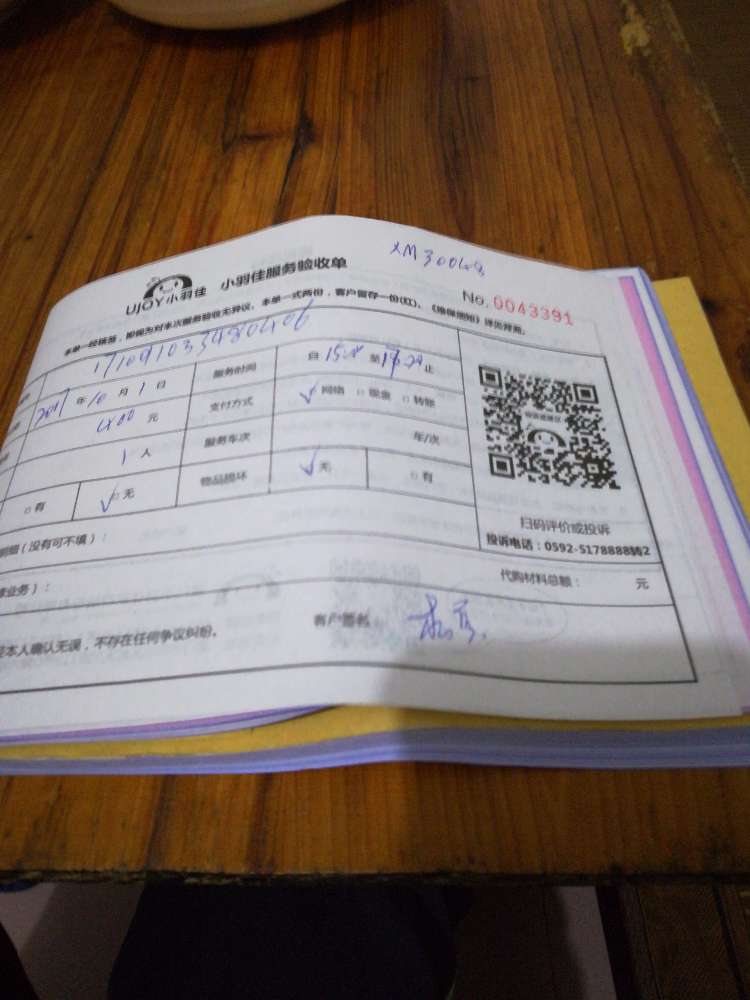 XM30048
UJOY小羽佳 小羽佳服务验收单
No.0043391
本单一经填写，即视为对本次服务验收无异议。本单一式两份，客户留存一份(红)、《维保细则》详见背面。
2017年10月1日 服务时间 自15: 至 止
400元 支付方式 ✓网络 □现金 □转账
1人 服务车次 年/次
□有 ✓□无 物品损坏 ✓无 □有
扫码评价或投诉
投诉电话：0592-5178888转2
明细（没有可不填）：
代购材料总额： 元
业务）：
本人确认无误，不存在任何争议纠纷。 客户签名